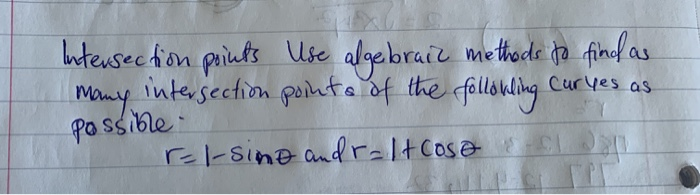 Intersection points Use algebraic methods to find as
many intersection points of the following curves as
possible.
r=1-sinθ and r=1+cosθ